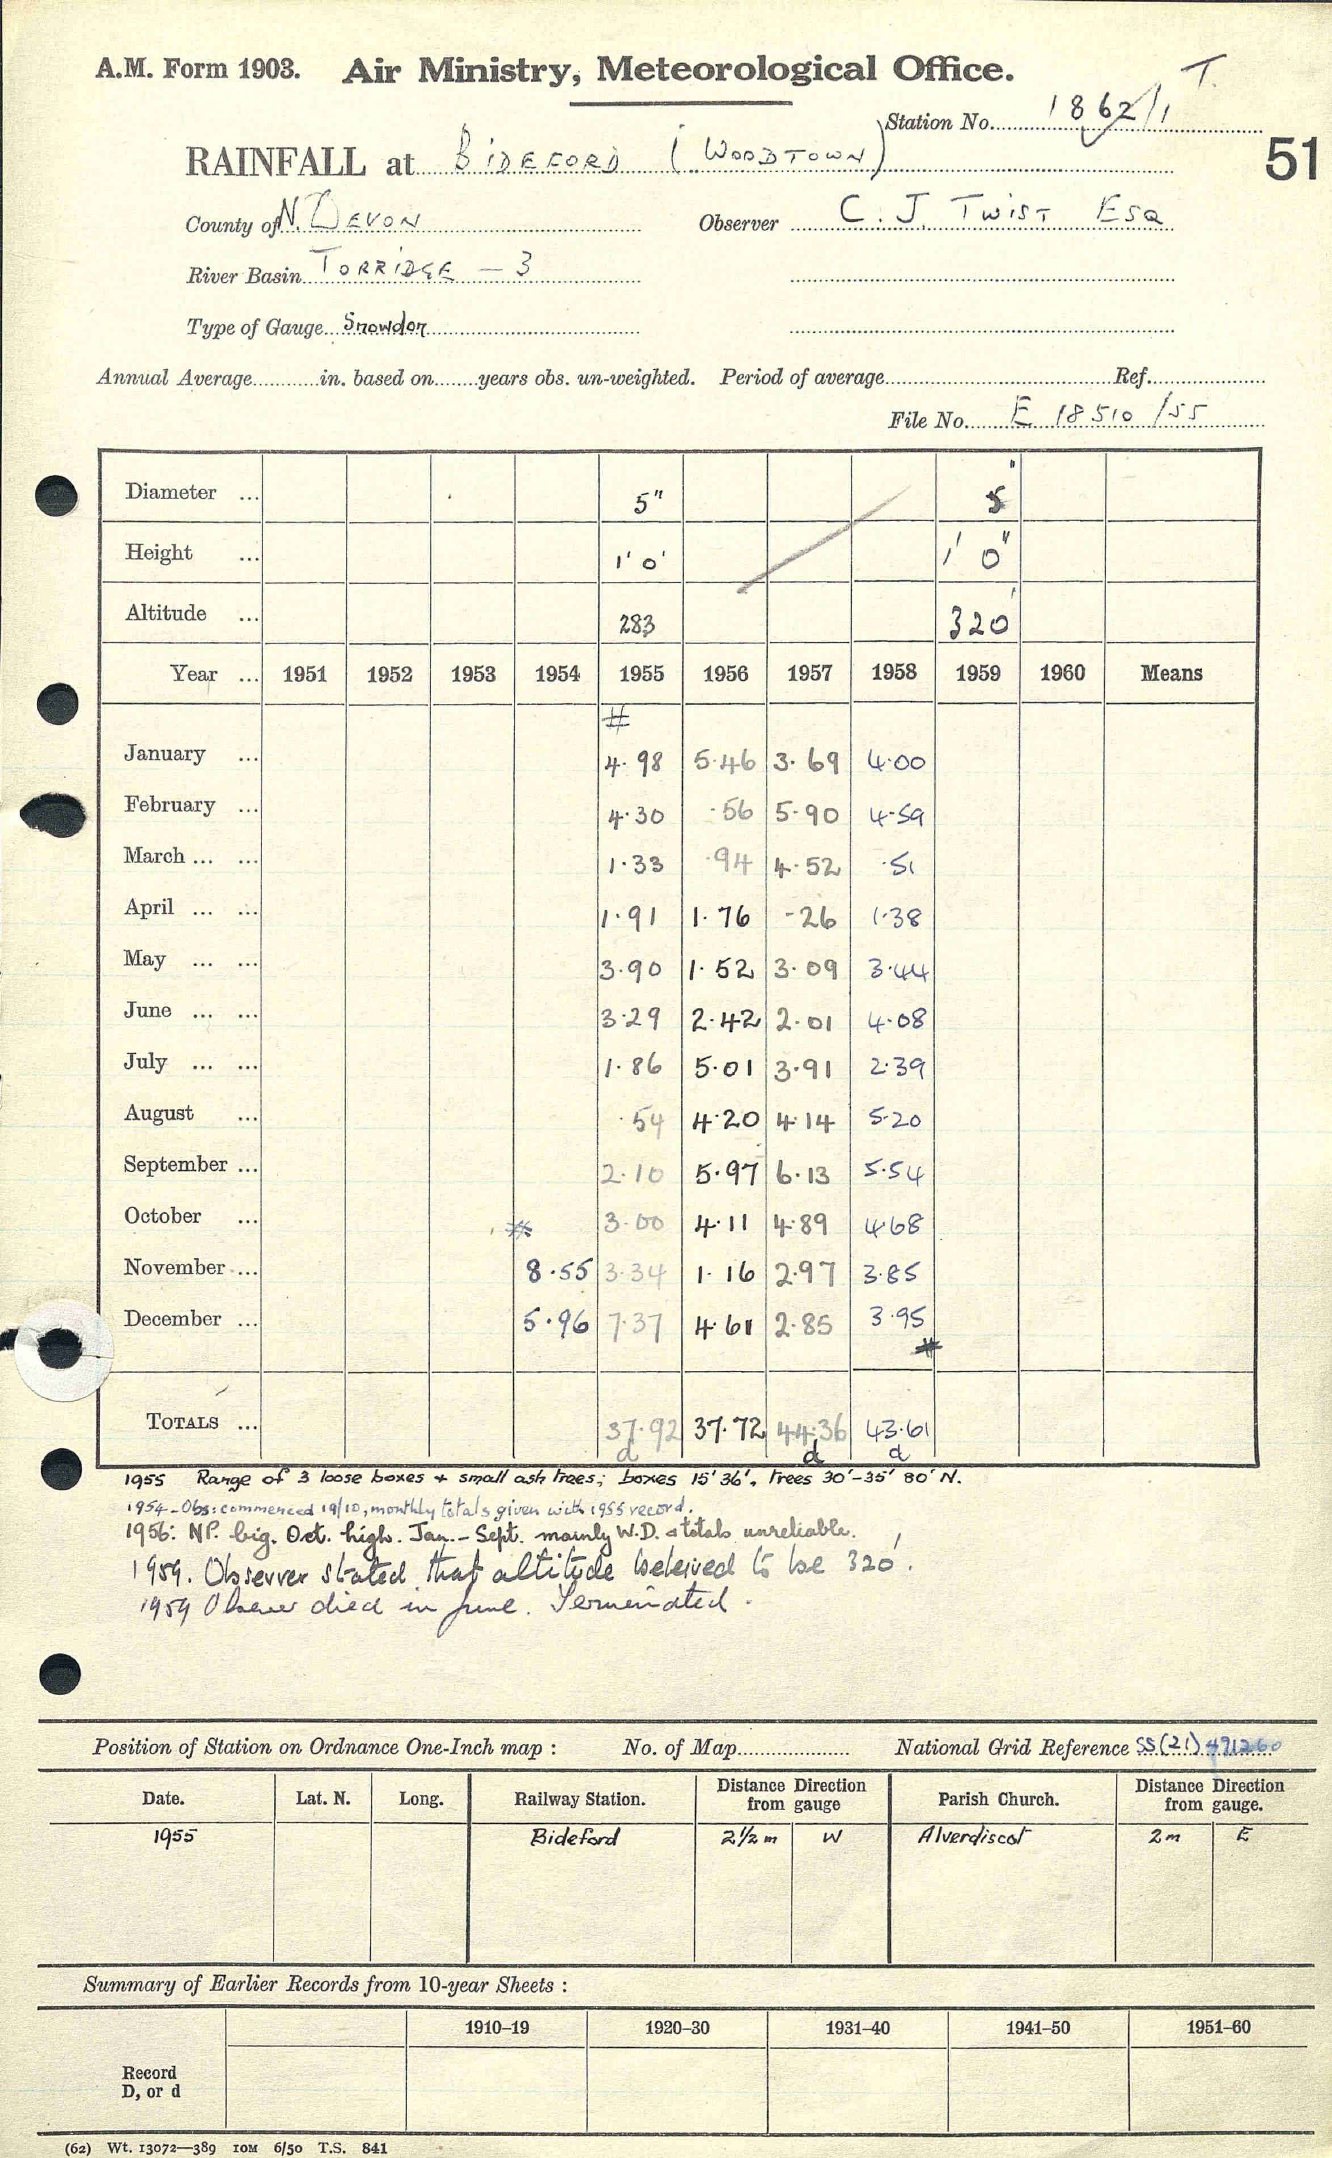 A.M. Form 1903. Air Ministry, Meteorological Office. T.
Station No. 1862/1
RAINFALL at BIDEFORD (WOODTOWN) 51
County of N. DEVON Observer C. J. TWIST ESQ
River Basin TORRIDGE – 3
Type of Gauge Snowdon
Annual Average in. based on years obs. un-weighted. Period of average Ref.
File No. E 18510/55
Diameter ... 5" 5"
Height ... 1' 0' 1' 0"
Altitude ... 283 320'
Year ... 1951 1952 1953 1954 1955 1956 1957 1958 1959 1960 Means
#
January ... 4.98 5.46 3.69 4.00
February ... 4.30 .56 5.90 4.59
March ... ... 1.33 .94 4.52 .51
April ... ... 1.91 1.76 .26 1.38
May ... ... 3.90 1.52 3.09 3.44
June ... ... 3.29 2.42 2.01 4.08
July ... ... 1.86 5.01 3.91 2.39
August ... .54 4.20 4.14 5.20
September ... 2.10 5.97 6.13 5.54
October ... # 3.00 4.11 4.89 4.68
November ... 8.55 3.34 1.16 2.97 3.85
December ... 5.96 7.37 4.61 2.85 3.95
#
TOTALS ... 37.92 37.72 44.36 43.61
d d d
1955 Range of 3 loose boxes + small ash trees; boxes 15' 36', trees 30'-35' 80' N.
1954 - Obs: commenced 19/10, monthly totals given with 1955 record.
1956: NP. big. Oct. high. Jan. - Sept. mainly W.D. & totals unreliable.
1959. Observer stated that altitude beleived to be 320'.
1959 Observer died in June. Terminated.
Position of Station on Ordnance One-Inch map : No. of Map National Grid Reference SS(21) 491260
Date. Lat. N. Long. Railway Station. Distance from Direction gauge Parish Church. Distance from Direction gauge.
1955 Bideford 2½ m W Alverdiscot 2m E
Summary of Earlier Records from 10-year Sheets :
1910–19 1920–30 1931–40 1941–50 1951–60
Record
D, or d
(62) Wt. 13072—389 10M 6/50 T.S. 841